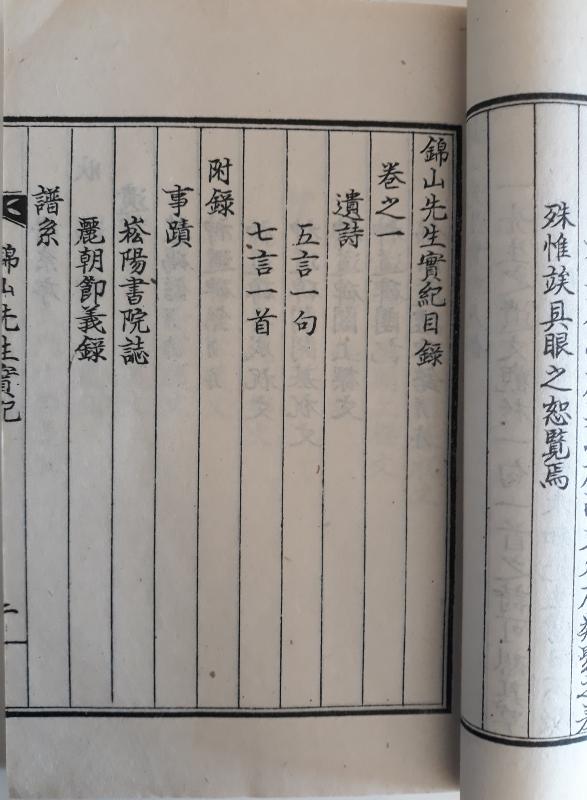 殊惟竢具眼之恕覽焉
錦山先生實紀目錄
卷之一
遺詩
五言一句
七言一首
附錄
事蹟
崧陽書院誌
麗朝節義錄
譜系
錦山先生實記
二